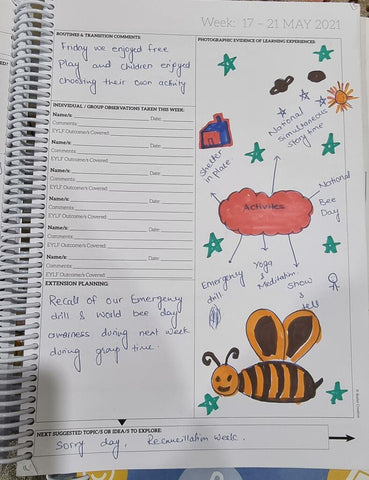 Week: 17 - 21 MAY 2021
ROUTINES & TRANSITION COMMENTS:
Friday we enjoyed free
Play and children enjoyed
choosing their own activity
INDIVIDUAL / GROUP OBSERVATIONS TAKEN THIS WEEK:
Name/s: Date:
Comments
EYLF Outcome/s Covered:
Name/s: Date:
Comments
EYLF Outcome/s Covered:
Name/s: Date:
Comments
EYLF Outcome/s Covered:
Name/s: Date:
Comments
EYLF Outcome/s Covered:
Name/s: Date:
Comments
EYLF Outcome/s Covered:
Name/s: Date:
Comments
EYLF Outcome/s Covered:
EXTENSION PLANNING:
Recall of our Emergency
drill & world bee day
awareness during next week
during group time.
PHOTOGRAPHIC EVIDENCE OF LEARNING EXPERIENCES:
National
Simultaneous
Story time
Shelter
in Place
Activities
National
Bee
Day
Emergency
drill
Yoga
&
Meditation
Show
&
tell
NEXT SUGGESTED TOPIC/S OR IDEA/S TO EXPLORE:
Sorry day, Reconciliation week.